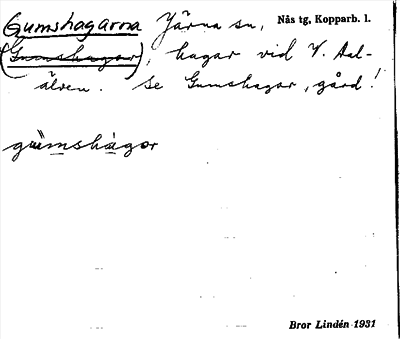 Gumshagarna Järna sn, Nås tg, Kopparb. l.
(Gumshagar), hagar vid V. Dal-
älven. Se Gumshagar, gård!
gu̎mshàgor
Bror Lindén 1931